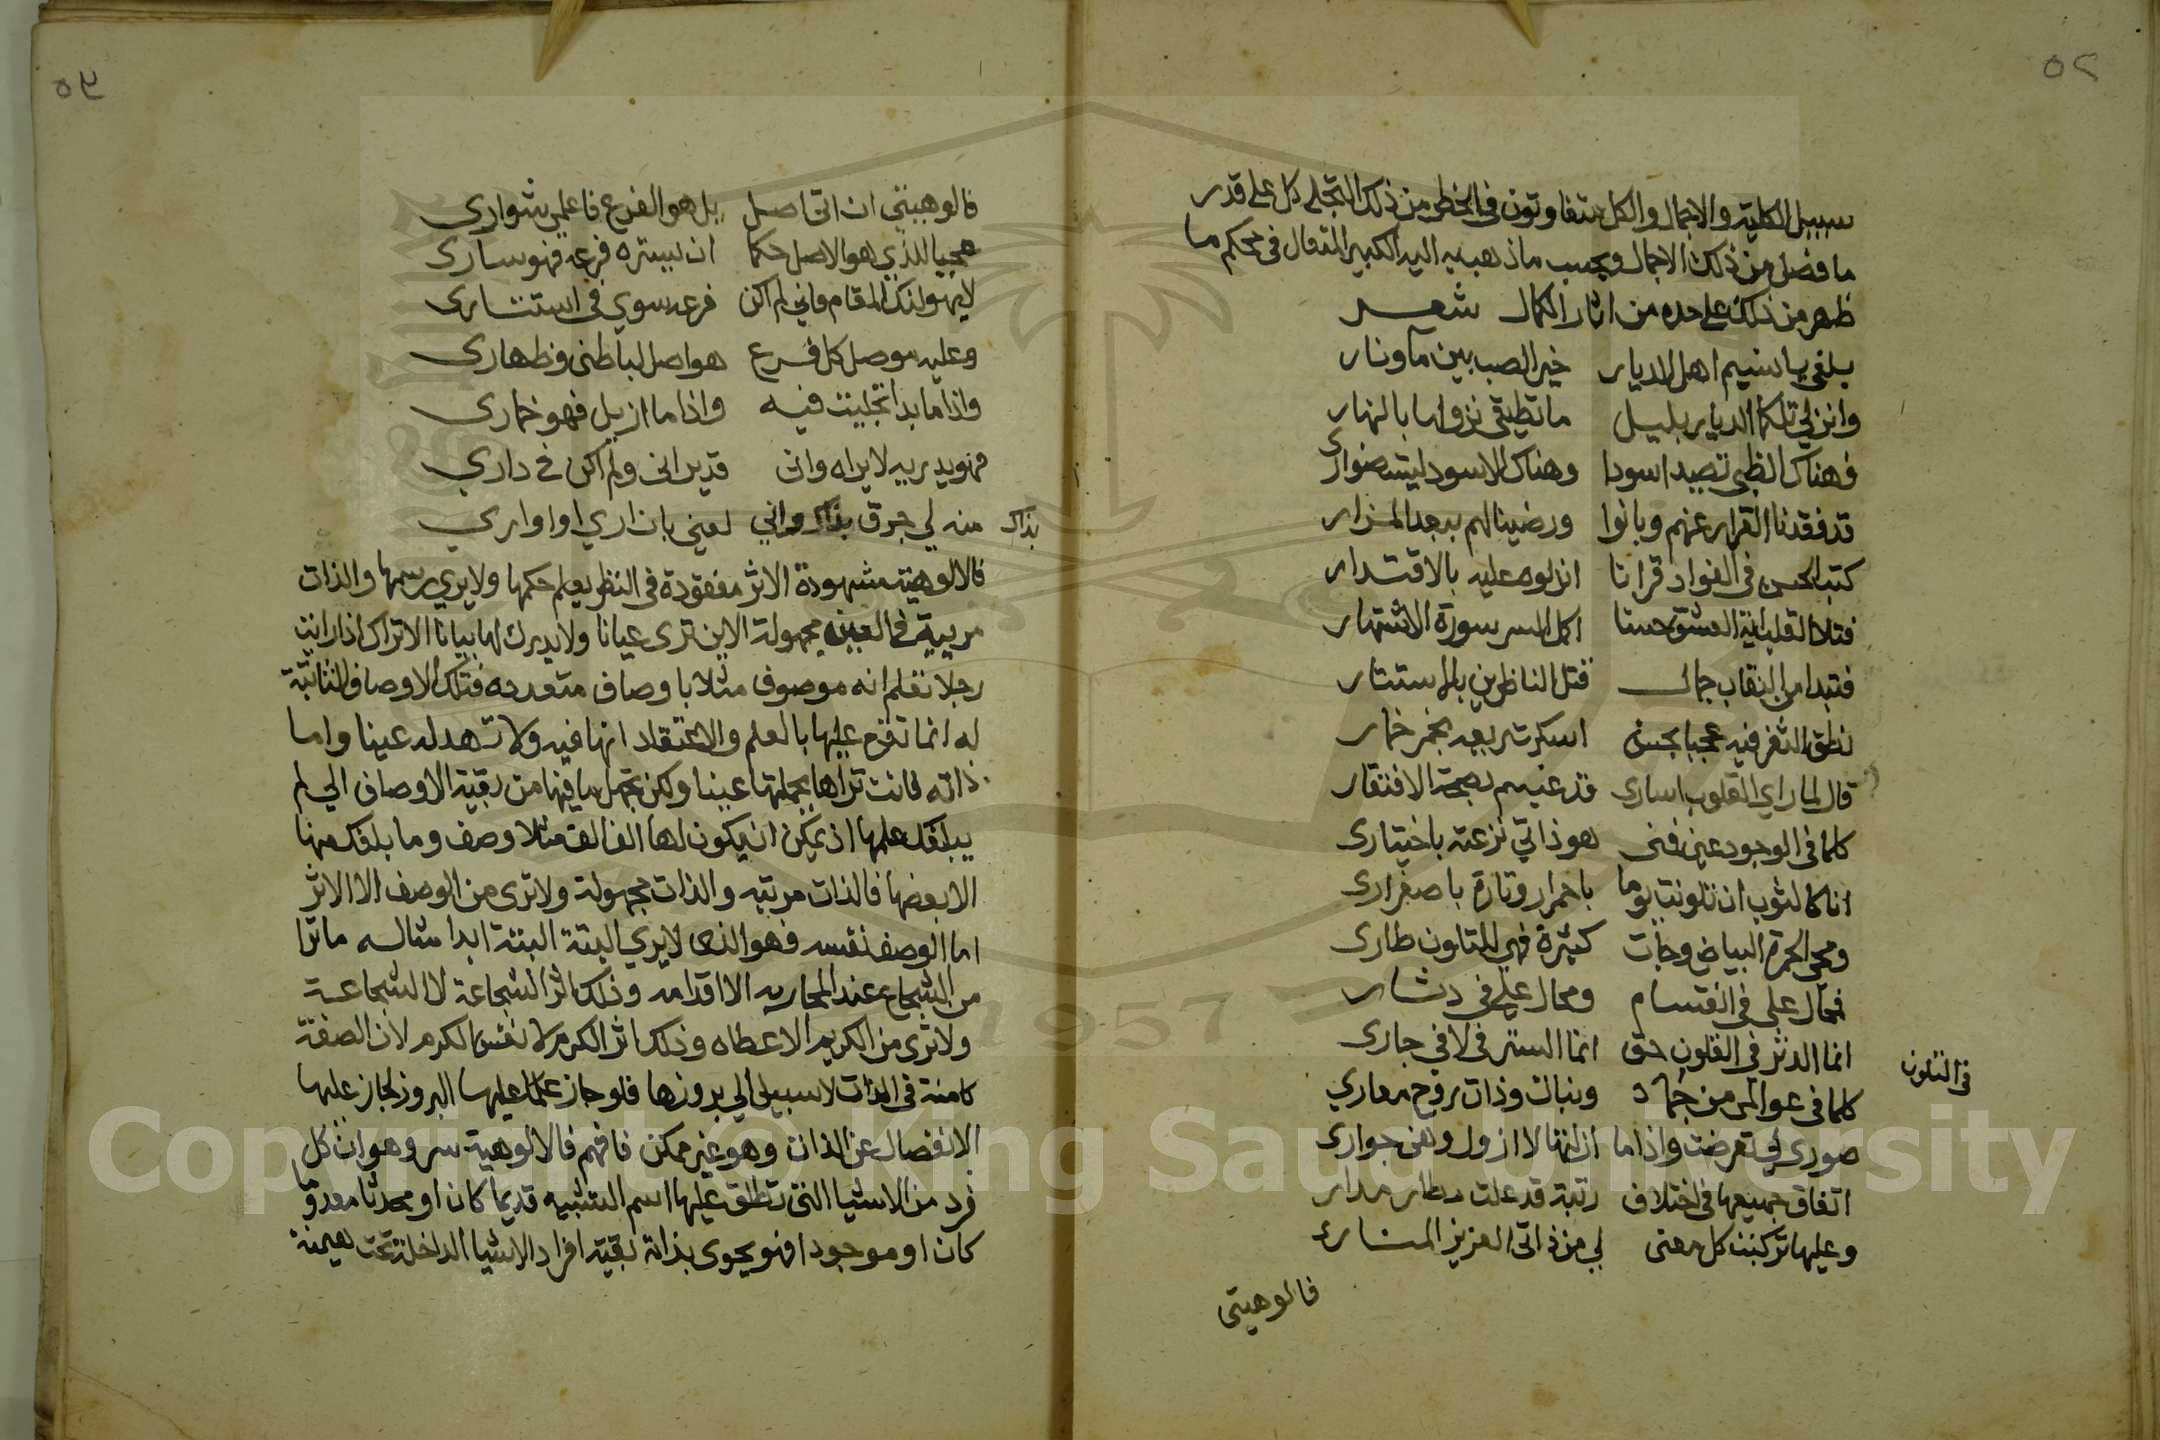 ٥٢
سبيل الكلية والاجمال والكل متفاوتون في الحظ من ذلك التجلي كل على قدر
ما فضل من ذلك الاجمال وبحسب ما ذهب به اليه الكبير المتعال في محكم ما
ظهر من ذلك على حده من اثار الكمال شعر
بلغي يا نسيم اهل الديار خبر الصب بين مآ ونار
وانزلي تلكم الديار بليل ما تطيقي نزولها بالنهار
فهناك الظبي تصيد اسودا وهناك الاسود ليست ضواري
قد فقدنا القرار عنهم وبانوا ورضينا لهم ببعد المزار
كتب الحسن في الفواد قرانا انزلوه عليه بالاقتدار
فتلا القلب اية العشق حسنا اكمل السر سورة الاشتهار
فتبدا من النقاب جمال قتل الناظرين بالاستتار
نطق الثغر فيه عجبا بحسن اسكرت ريقه بخمر خمار
قال لما راي القلوب اساري قد غنيتم بصحة الافتقار
كلما في الوجود عين فني هو ذاتي نزعته باختياري
انا كالثوب ان تلونت يوما باحمرار وتارة باصفراري
ومحي الحمرة البياض وجآت كثرة فهي للتلون طاري
فمحال علي في انقسام ومحال علي في دثار
انما الدثر في التلون حق انما الستر في لا في جاري
في التلون
كلما في عوالمي من جماد ونبات وذات روح معاري
صوري لي تعرضت واذا ما ازلتها لا ازول وهي جواري
اتفاق جميعها في اختلاف رتبة قد علت مطار مدار
وعليها تركبت كل معني لي من ذاتي العزيز المنار
فالوهيتي
٥٣
فالوهيتي ان اتي اصل بل هو الفرع فاعلمي شواري
عجبا للذي هو الاصل حكما ان يستره فرعه فهو ساري
لا يهولنك المقام فاني لم اكن فرعه سوي في استتاري
وعليه موصل كل فرع هو اصل لباطني وظهاري
واذا ما بدا تجليت فيه واذا ما ازيل فهو خماري
فهو يدريه لا يراه واني قد يراني ولم اكن في داري
منه لي جرق بذاك واني لغني بان اري او اواري
بذاك
فالالوهية مشهودة الاثر مفقودة في النظر يعلم حكمها ولا يري رسمها والذات
مريية في العين مجهولة الاين ترى عيانا ولا يدرك لها بيانا الا تراك اذا رايت
رجلا تعلم انه موصوف مثلا باوصاف متعدده فتلك الاوصاف الثابتة
له انما تقع عليها بالعلم والاعتقاد انها فيه ولا تشهد له عينا واما
ذاته فانت تراها بجملتها عينا ولكن تجهل ما فيها من بقية الاوصاف التي لم
يبلغك علمها اذ يمكن ان يكون لها الف الف مثلا وصف وما بلغك منها
الا بعضها فالذات مرتيه والذات مجهولة ولا ترى من الوصف الا الاثر
اما الوصف نفسه فهو الذى لا يري البتة البتة ابدا مثاله ما ترا
من الشجاع عند المحاربه الا اقدامه وذلك اثر الشجاعة لا الشجاعة
ولا ترى من الكريم الا عطاه وذلك اثر الكرم لا نفس الكرم لان الصفة
كامنة في الذات لا سبيل الي بروزها فلو جاز عليها البروز لجاز عليها
الانفصال عن الذات وهو غير ممكن فافهم فالالوهية سر وهو ان كل
فرد من الاشيا التي تطلق عليها اسم الشيئيه قديما كان او محدثا معدوما
كان او موجودا فهو يحوى بذاته بقية افراد الاشيا الداخلة تحت هيمنة
Copyright © King Saud University
1957